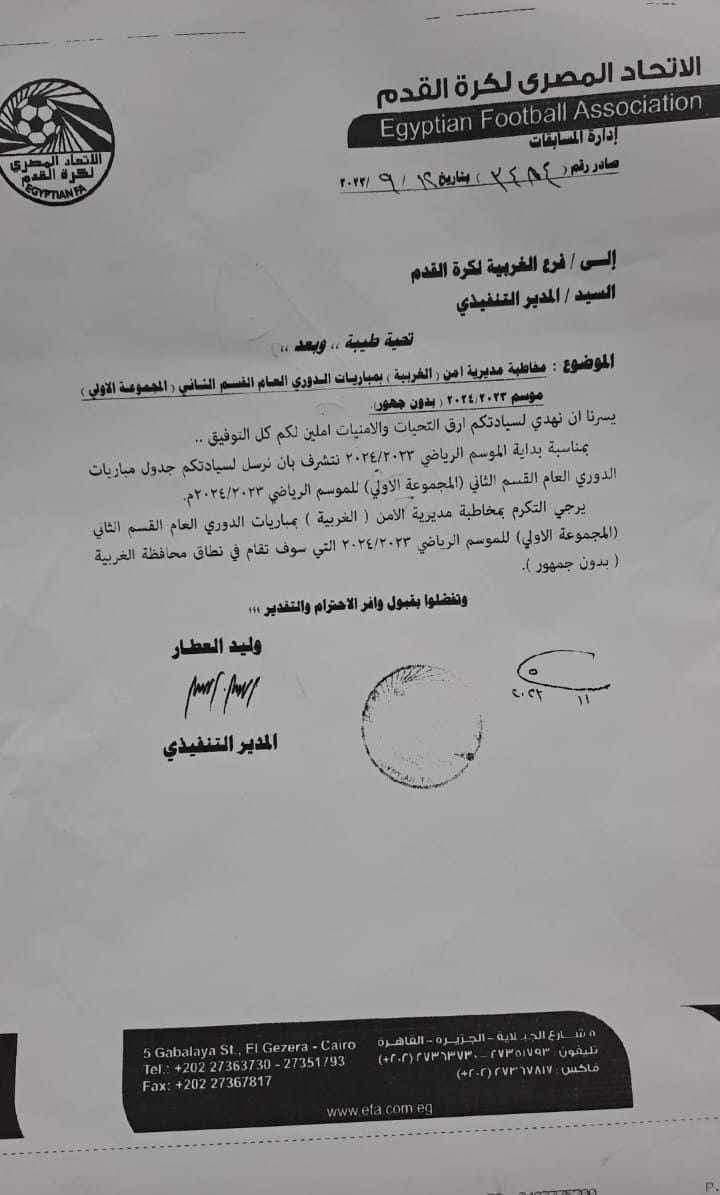 الاتحاد المصرى لكرة القدم
Egyptian Football Association
الاتحاد المصرى
لكرة القدم
EGYPTIAN FA
إدارة المسابقات
صادر رقم ( ) بتاريخ ١٢ / ٩ /٢٠٢٣
إلــى / فرع الغربية لكرة القدم
السيد / المدير التنفيذي
تحية طيبة ،، وبعد ،،
الموضوع : مخاطبة مديرية امن ( الغربية ) بمباريات الدوري العام القسم الثاني ( المجموعة الاولي )
موسم ٢٠٢٤/٢٠٢٣ ( بدون جهور).
يسرنا ان نهدي لسيادتكم ارق التحيات والامنيات املين لكم كل التوفيق ..
بمناسبة بداية الموسم الرياضي ٢٠٢٤/٢٠٢٣ نتشرف بان نرسل لسيادتكم جدول مباريات
الدوري العام القسم الثاني (المجموعة الاولي) للموسم الرياضي ٢٠٢٤/٢٠٢٣م.
يرجي التكرم بمخاطبة مديرية الامن ( الغربية ) بمباريات الدوري العام القسم الثاني
(المجموعة الاولي) للموسم الرياضي ٢٠٢٤/٢٠٢٣ التي سوف تقام في نطاق محافظة الغربية
( بدون جمهور ).
وتفضلوا بقبول وافر الاحترام والتقدير ،،،
وليد العطار
المدير التنفيذي
٥ شارع الجبلاية - الجزيرة - القاهرة
تليفون: ٢٧٣٥١٧٩٣ - ٢٧٣٦٣٧٣٠ (٢٠٢+)
فاكس: ٢٧٣٦٧٨١٧ (٢٠٢+)
5 Gabalaya St., El Gezera - Cairo
Tel.: +202 27363730 - 27351793
Fax: +202 27367817
www.efa.com.eg